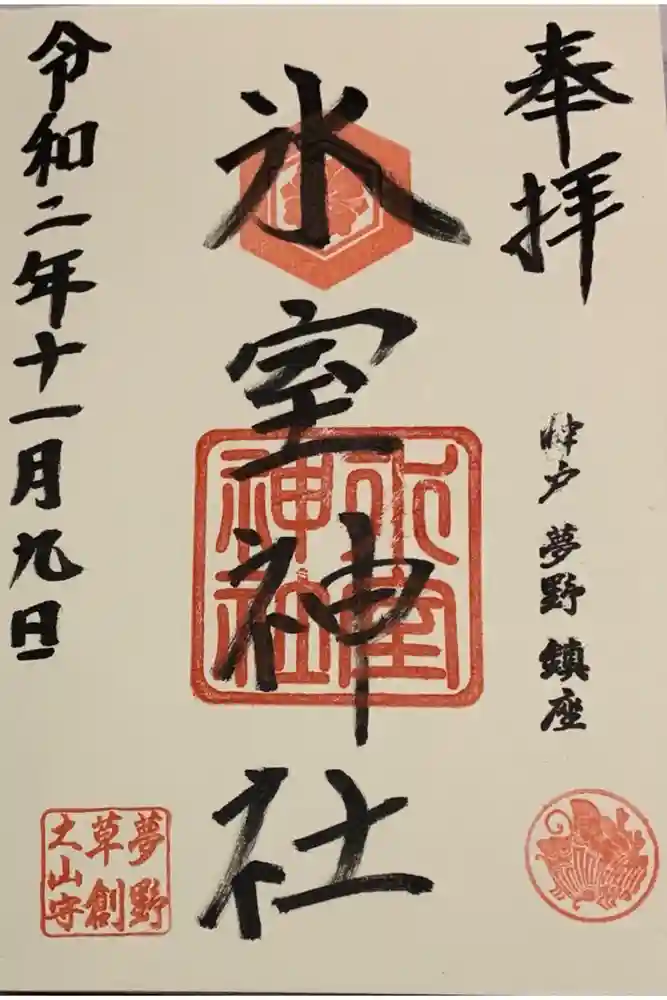 奉拝
神戸 夢野 鎮座
氷室神社
氷室
神社
令和二年十一月九日
夢野
草創
大山守